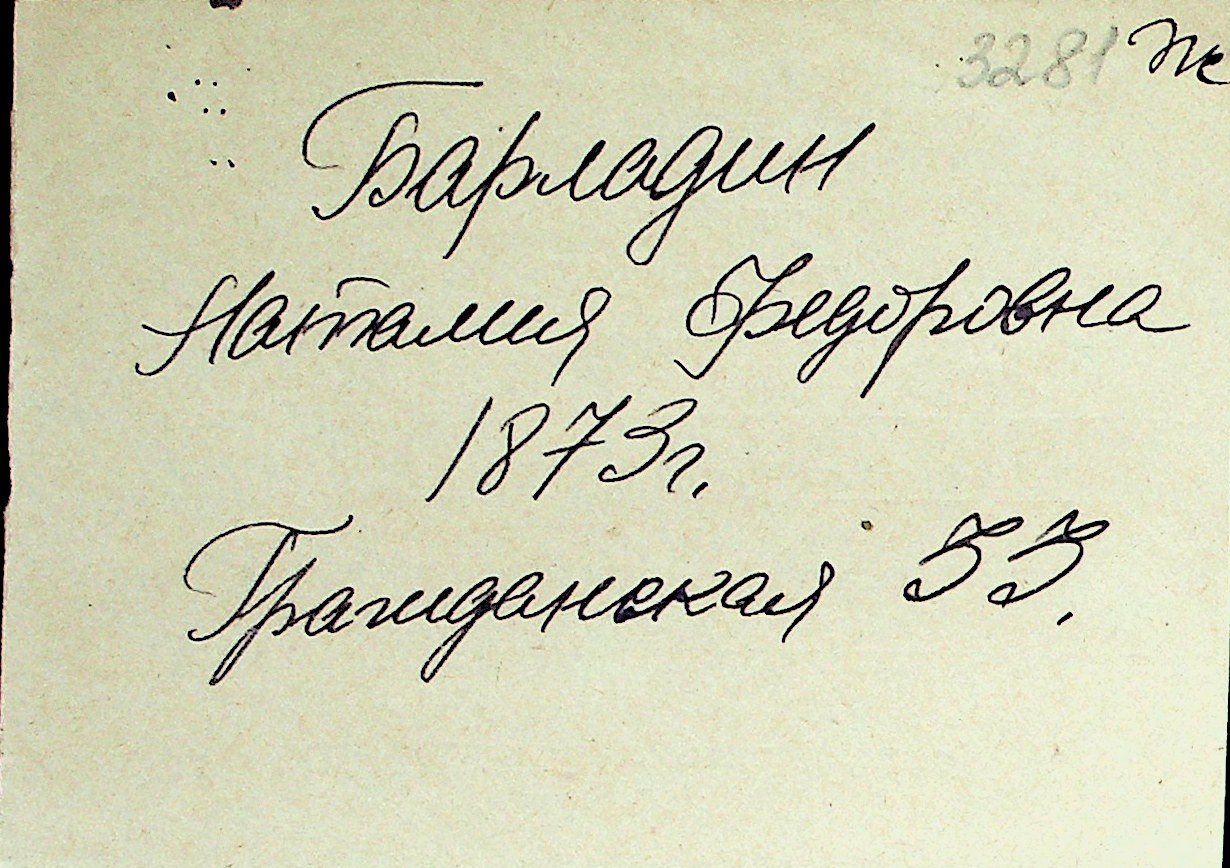 3281 Ж
Барладин
Наталия Федоровна
1873г.
Гражданская 33.